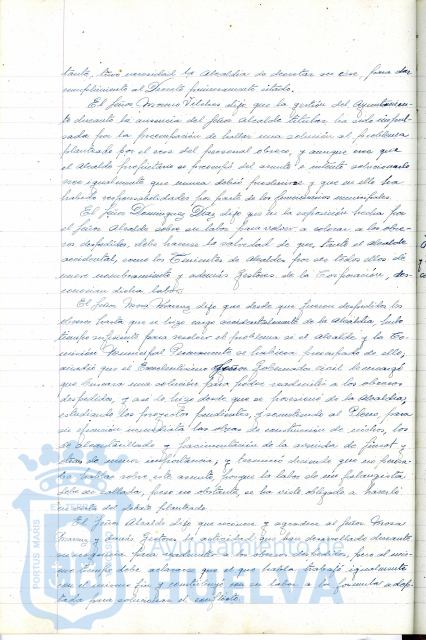 tanto, tuvo necesidad la Alcaldía de decretar su cese, para dar
cumplimiento al Decreto primeramente citado.
El Señor Moreno Vilches dijo que la gestión del Ayuntamien-
to durante la ausencia del Señor Alcalde titular ha sido impul-
sada por la preocupación de hallar una solución al problema
planteado por el cese del personal obrero, y aunque cree que
el Alcalde propietario se preocupó del asunto e intentó solucionarlo
cree igualmente que nunca debió producirse y que en ello ha
habido responsabilidades por parte de los funcionarios municipales.
El Señor Domínguez Díaz dijo que en la exposición hecha por
el Señor Alcalde sobre su labor para volver a colocar a los obre-
ros despedidos, debe hacerse la salvedad de que, tanto el Alcalde
accidental, como los Tenientes de Alcalde por ser todos ellos de
nuevo nombramiento y además Gestores de la Corporación, des-
conocían dicha labor.
El Señor Mora desde que fueron despedidos los
obreros hasta que se hizo cargo accidentalmente de la Alcaldía, hubo
tiempo suficiente para resolver el problema si el Alcalde y la Co-
misión Municipal Permanente se hubiera preocupado de ello,
añadió que el Excelentísimo Señor Gobernador Civil le encargó
que buscara una solución para poder readmitir a los obreros
despedidos, y así lo hizo desde que se posesionó de la Alcaldía,
estudiando los proyectos pendientes, y sometiendo al Pleno para
su ejecución inmediata las obras de construcción de nichos, las
de alcantarillado y pavimentación de la avenida de y
otras de menor importancia, y terminó diciendo que no pensa-
ba hablar sobre este asunto, porque la labor de un falangista
debe ser callada, pero no obstante, se ha visto obligado a hacerlo
en vista del debate planteado.
El Señor Alcalde dijo que reconoce y agradece al Señor Mora
y demás Gestores la actividad que han desarrollado durante
su ausencia para readmitir a los obreros despedidos, pero al mis-
mo tiempo debe aclarar que el que habla trabajó igualmente
con el mismo fin y contribuyó con su labor a la fórmula adop-
tada para solucionar el conflicto.
PORTUS MARIS
Ayuntamiento
HUELVA